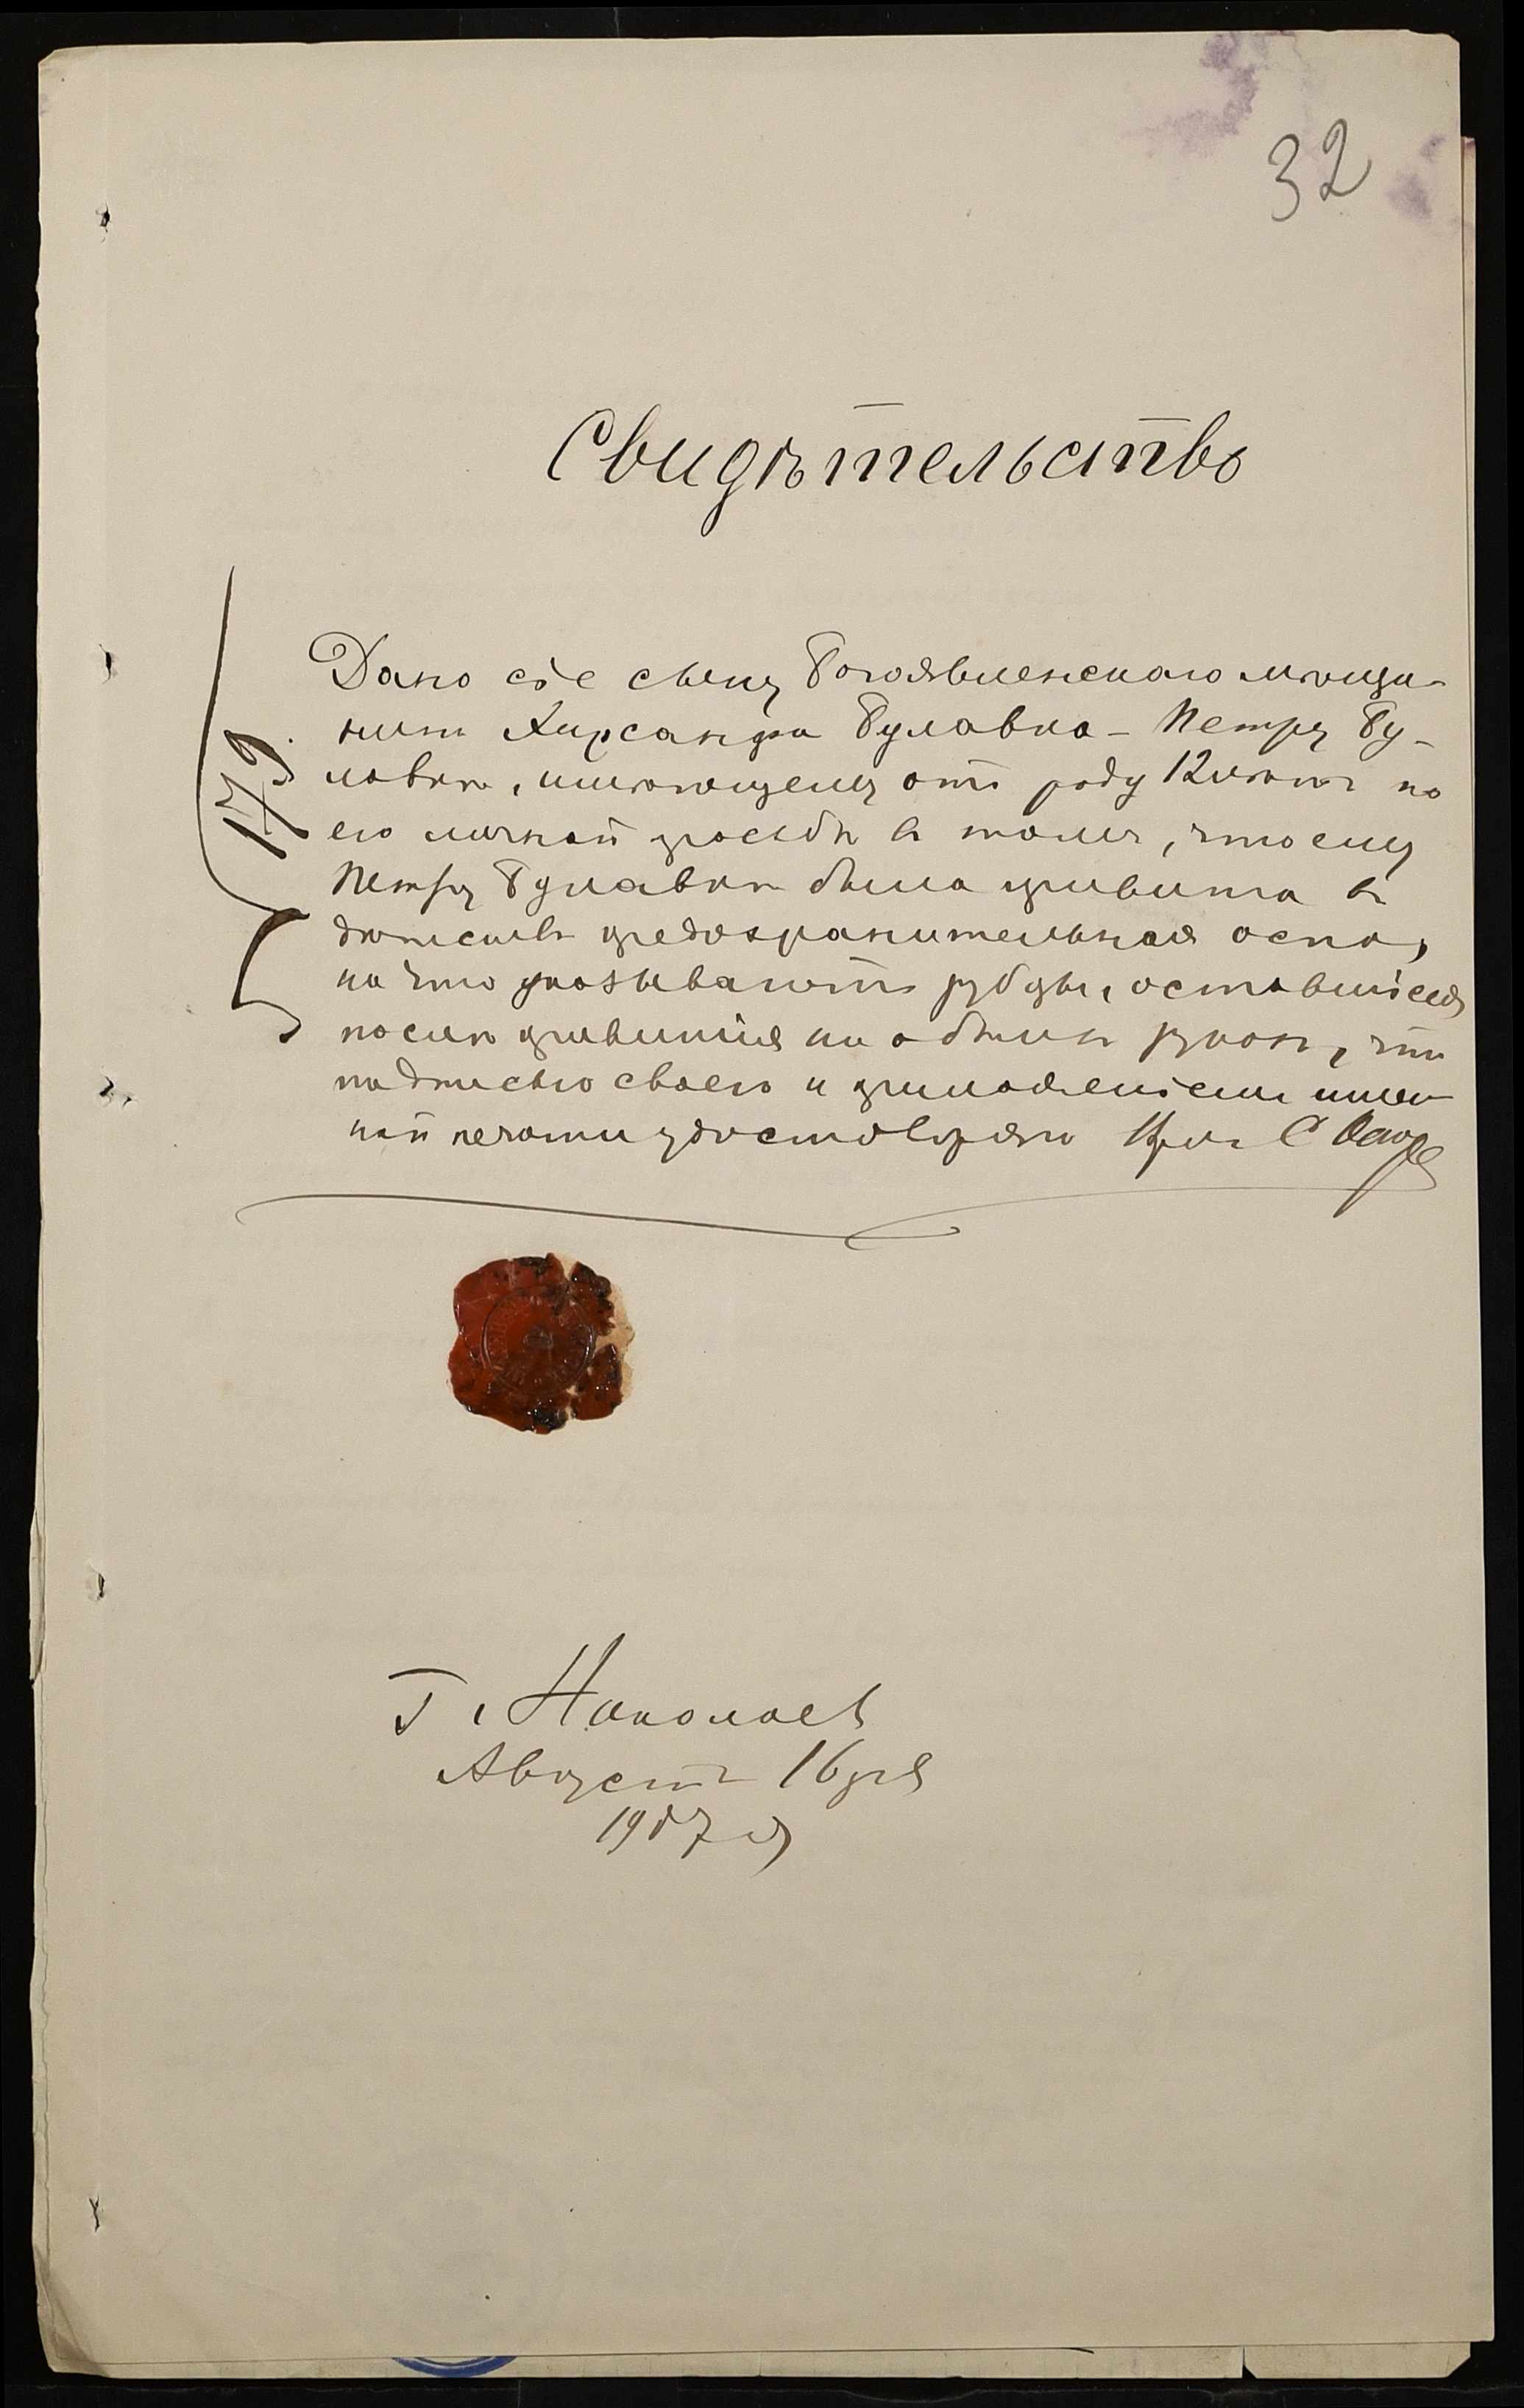 32
Свидѣтельство
179
Дано сіе сыну Богоявленскаго мѣщи-
нина Хирсанфа Булавка - Петру Бу-
лавкѣ, имѣющему отъ роду 12 лѣтъ по
его личной просьбѣ въ томъ, что ему
Петру Булавкѣ была привита въ
дѣтствѣ предохранительная оспа,
на что указываютъ рубцы, оставшіеся
послѣ привитія на обѣихъ рукахъ, что
подписью своею и приложеніемъ имен-
ной печати удостовѣряю Врачъ С
Г. Николаевъ
Августа 16 дня
1907 г